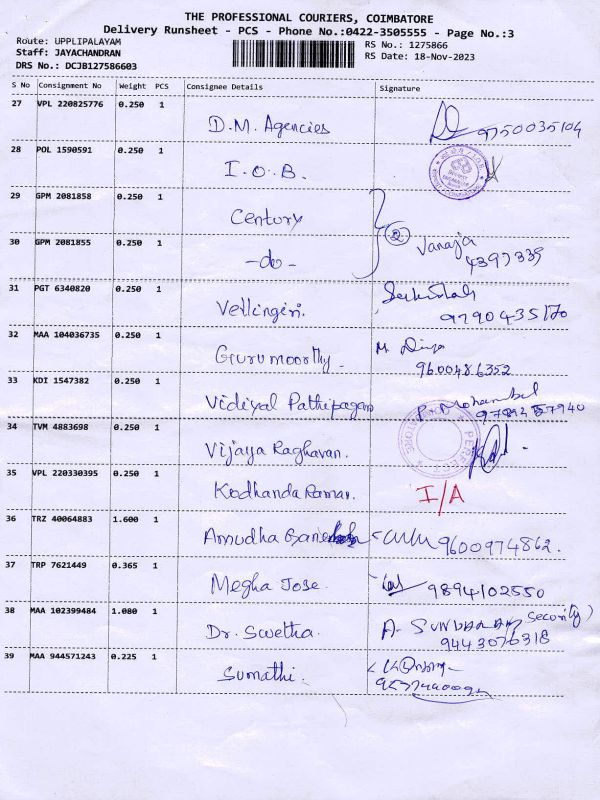 THE PROFESSIONAL COURIERS, COIMBATORE
Delivery Runsheet - PCS - Phone No.:0422-3505555 - Page No.:3
Route: UPPLIPALAYAM
Staff: JAYACHANDRAN
DRS No.: DCJB127586603
RS No.: 1275866
RS Date: 18-Nov-2023
S No Consignment No Weight PCS Consignee Details Signature
27 VPL 220825776 0.250 1
D.M. Agencies 9750035104
28 POL 1590591 0.250 1
I.O.B.
29 GPM 2081858 0.250 1
Century
30 GPM 2081855 0.250 1
-do- 2 Vanaja
4397339
31 PGT 6340820 0.250 1
Vellingiri.
32 MAA 104036735 0.250 1
Gurumoorthy M. Divya
9600486352
33 KDI 1547382 0.250 1
Vidiyal Pathipagam
34 TVM 4883698 0.250 1
Vijaya Raghavan. PERFECT
35 VPL 220330395 0.250 1
Kodhanda Raman. I/A
36 TRZ 40064883 1.600 1
Amudha 9600974862.
37 TRP 7621449 0.365 1
Megha Jose. 9894102550
38 MAA 102399484 1.080 1
Dr. Swetha. A. SUNDARAM Security)
9443076318
39 MAA 944571243 0.225 1
Sumathi.